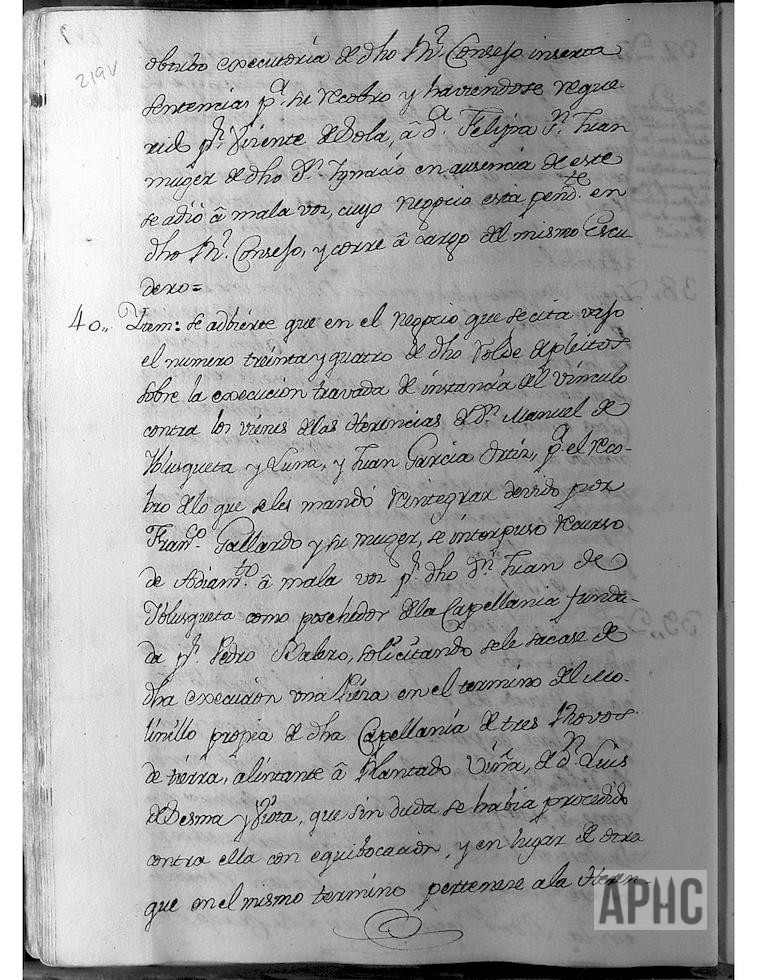 219v
obtubo executoria de dho Rl. Consejo inserta
sentencias pa. su recobro y haviendose reque-
rido pr. Vicente de Sola, â Da. Felipa Sn. Juan
muger de dho Dn. Ignacio en ausencia de este
se adió â mala voz, cuyo negocio está pendte. en
dho Rl. Consejo, y corre â cargo del mismo Escu-
dero=
40,, Item: se adbierte que en el negocio que se cita vajo
el numero treinta y quatro de dho Rolde de pleitos
sobre la execucion travada de instancia del vinculo
contra los vienes de las Herencias de Dn. Manuel de
Musqueta y Luna, y Juan Garcia Ortiz, pa. el reco-
bro de lo que se les mandó reintegrar devido por
Franco. Gallardo y su muger, se interpuso recurso
de Adiamto. â mala voz pr. dho Dn. Juan de
Musqueta como poschedor de la Capellania funda-
da pr. Pedro Malero, solicitando se le sacase de
dha execucion una Pieza en el termino del Mo-
linillo propia de dha Capellanía de tres Rovos
de tierra, alintante â Plantado Viña, de Dn. Luis
de Desma y Viota, que sin duda se habia procedido
contra ella con equibocacion, y en lugar de otra
que en el mismo termino pertenese a la Heren-
APHC